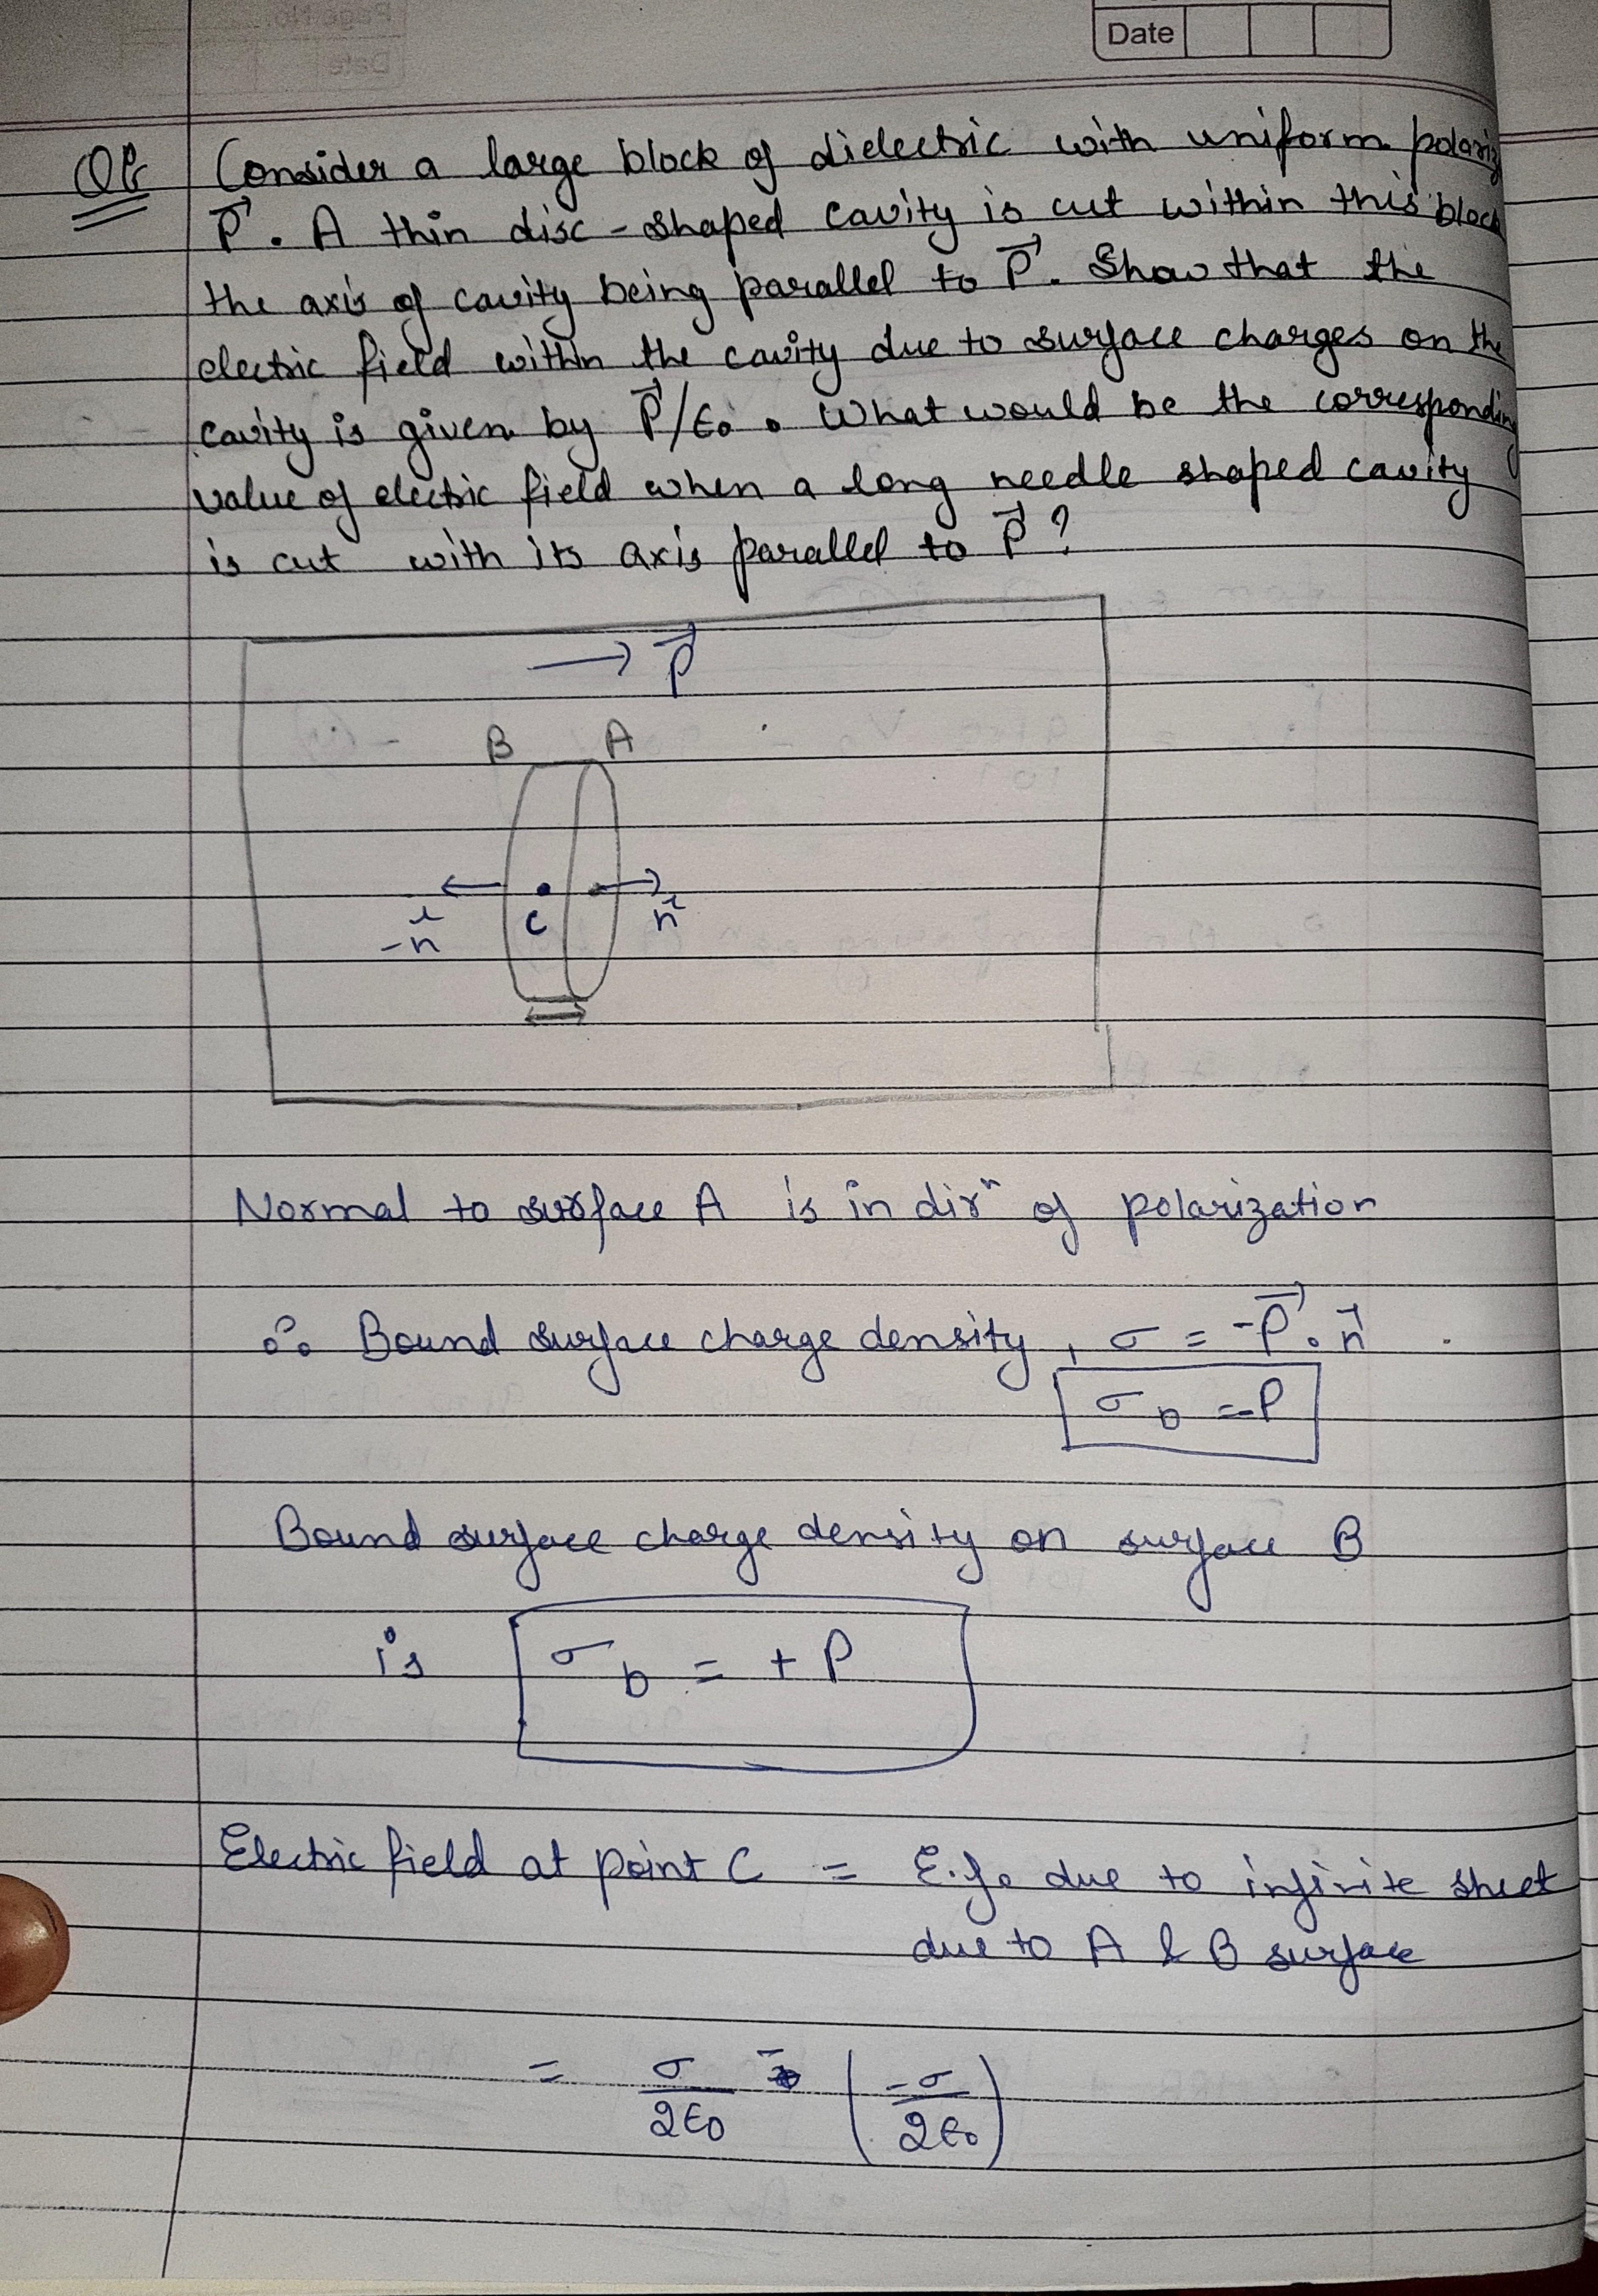 Date
Q6 Consider a large block of dielectric with uniform
P⃗. A thin disc-shaped cavity is cut within this block
the axis of cavity being parallel to P⃗. Show that the
electric field within the cavity due to surface charges on the
cavity is given by P⃗/ϵ₀. What would be the
value of electric field when a long needle shaped cavity
is cut with its axis parallel to P⃗?
→ P⃗
B A
-n⃗ C n⃗
Normal to surface A is in dirⁿ of polarization
∴ Bound surface charge density, σ = -P⃗.n⃗
σb = -P
Bound surface charge density on surface B
is σb = + P
Electric field at point C = E.f. due to infinite sheet
due to A & B surface
= σ/2ϵ₀ - (-σ/2ϵ₀)